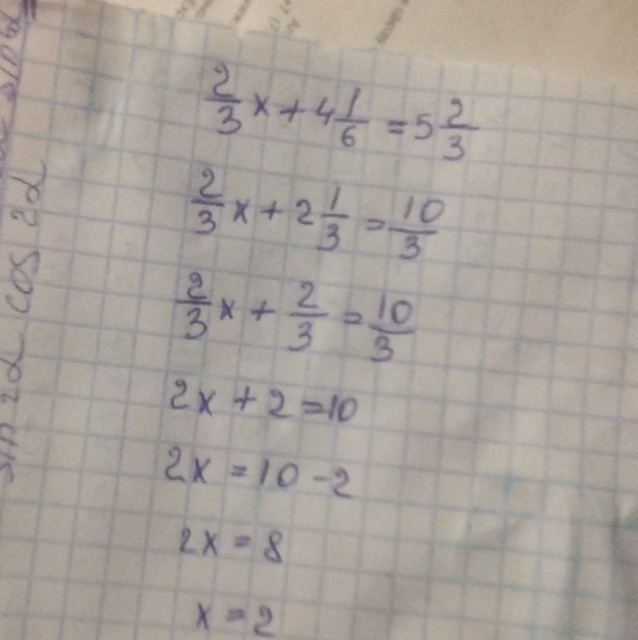 2/3 x + 4 1/6 = 5 2/3
2/3 x + 2 1/3 = 10/3
2/3 x + 2/3 = 10/3
2x + 2 = 10
2x = 10 - 2
2x = 8
x = 2
sin 2d cos 2d